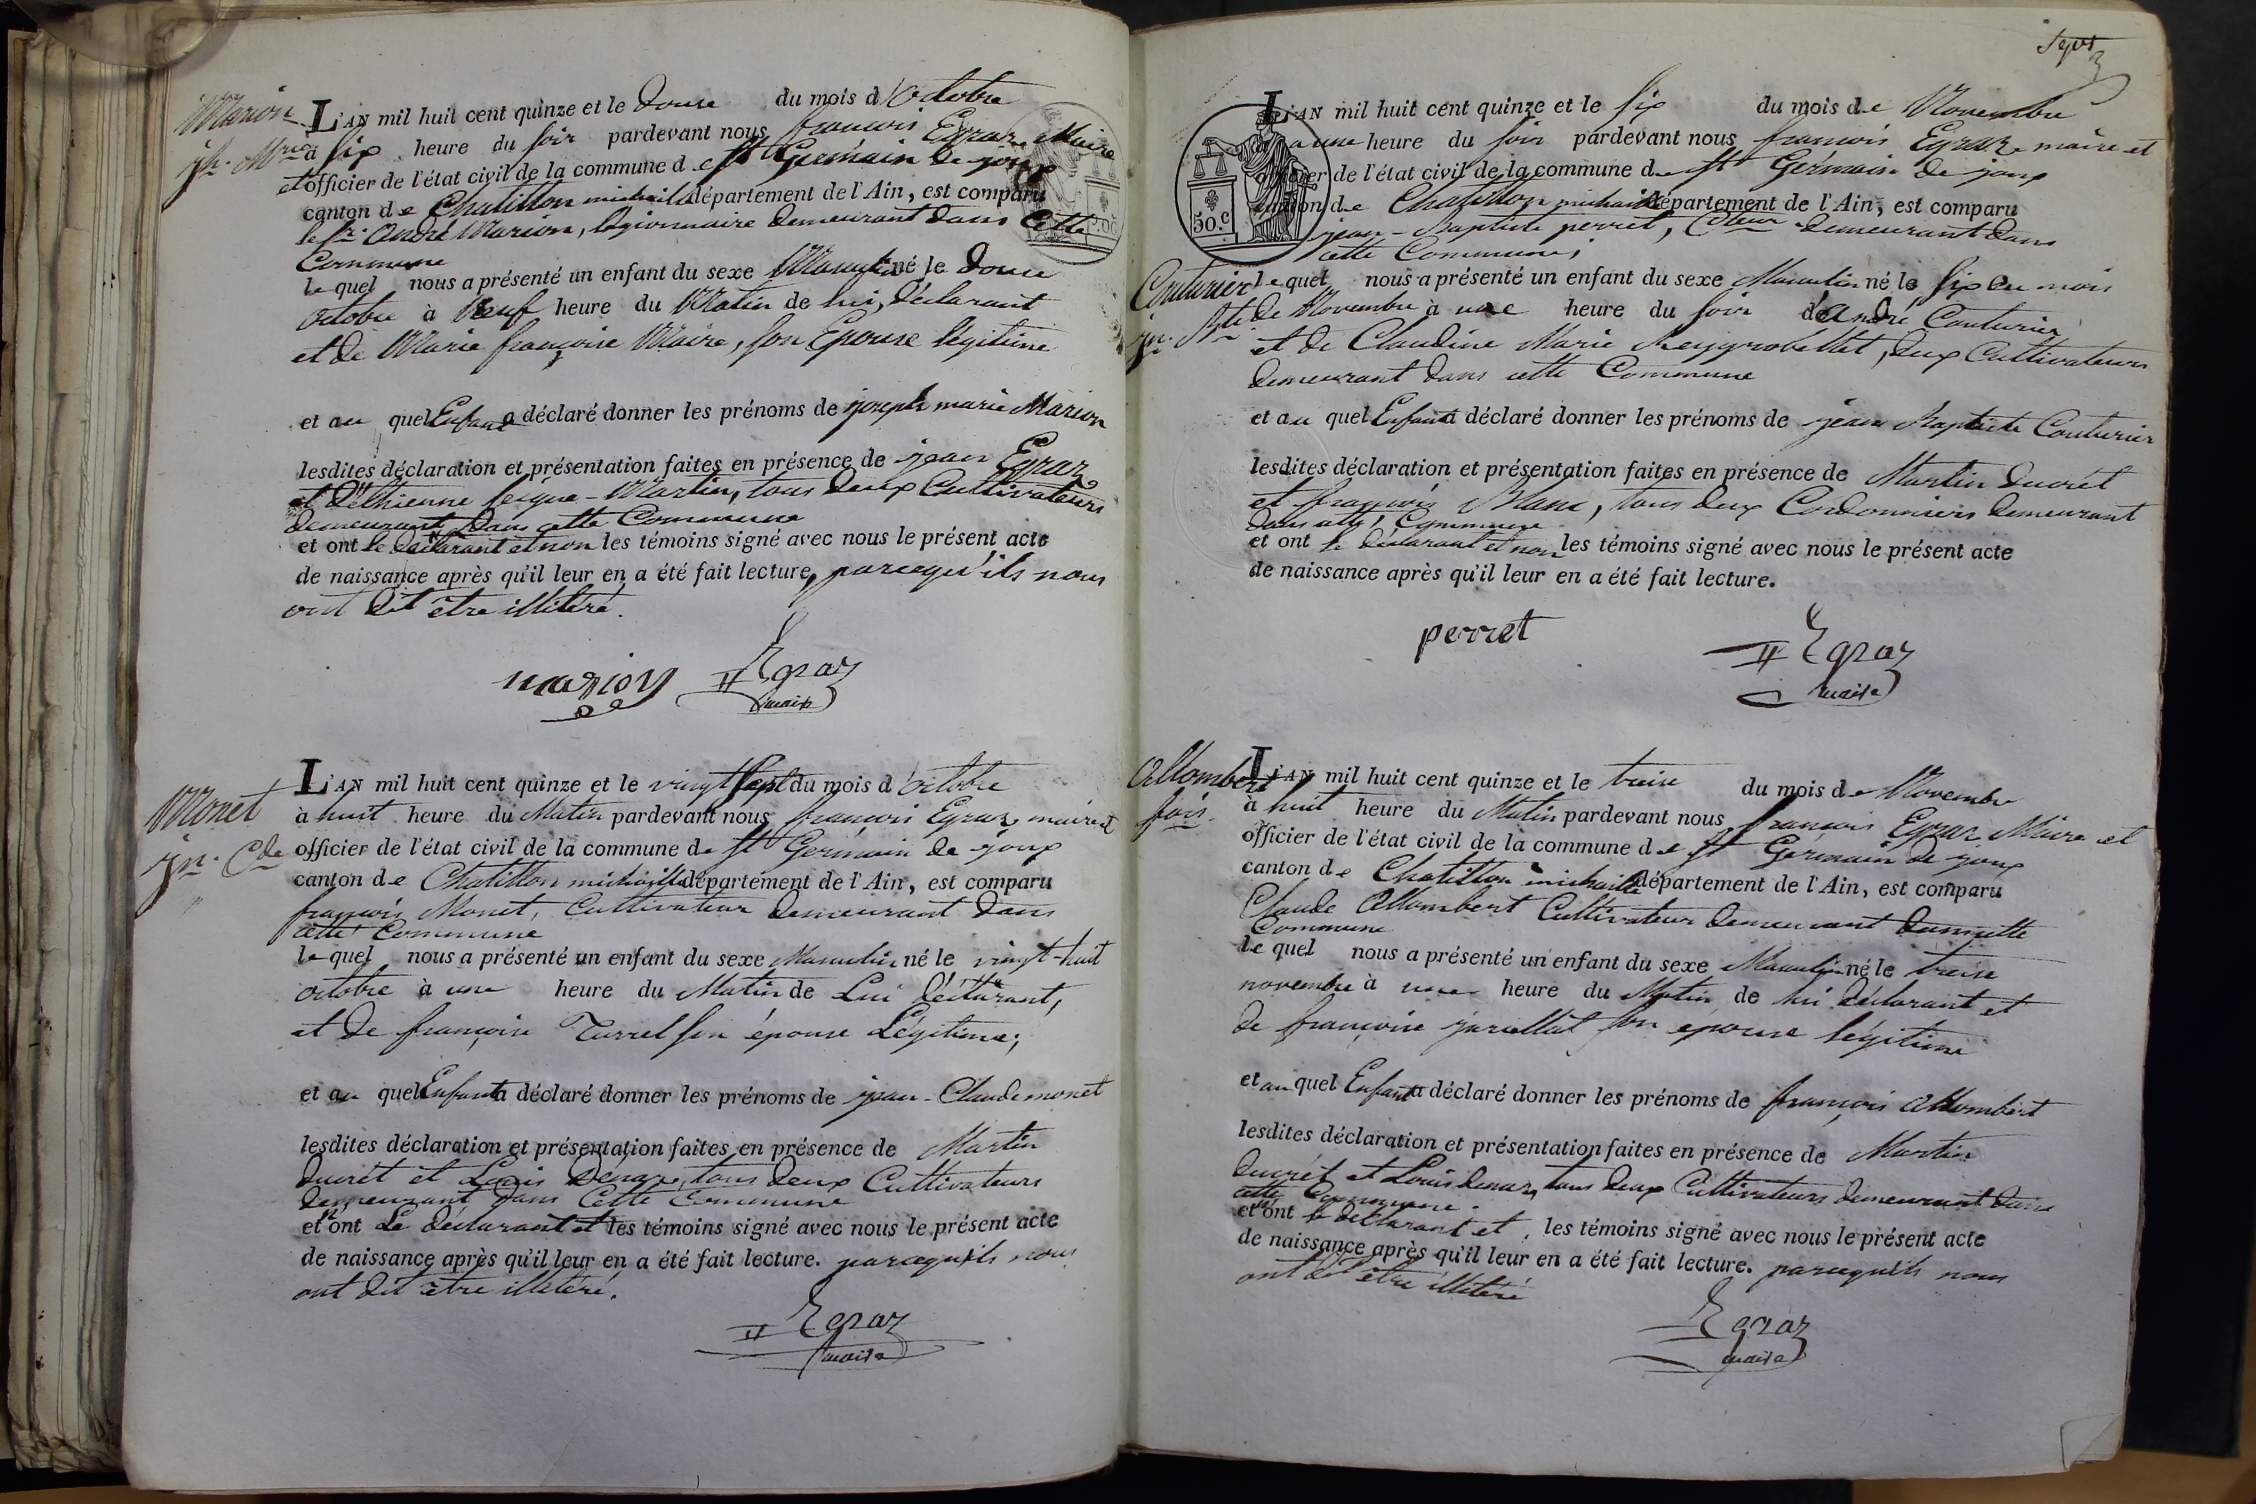 Marion
jh. Mrie
L'AN mil huit cent quinze et le douze du mois d'octobre
à six heure du soir pardevant nous françois Egraz Maire
et officier de l'état civil de la commune de St Germain de joux
canton de Chatillon michaille département de l'Ain, est comparu
le Sr. André Marion, légionnaire demeurant dans cette
Commune
le quel nous a présenté un enfant du sexe Masculin né le douze
octobre à Neuf heure du Matin de lui, déclarant
et de Marie françoise Maire, son Epouse légitime
et au quel Enfant a déclaré donner les prénoms de joseph marie Marion
lesdites déclaration et présentation faites en présence de jean Egraz
et d'Ethienne Martin, tous deux Cultivateurs
demeurant dans cette Commune
et ont le déclarant et non les témoins signé avec nous le présent acte
de naissance après qu'il leur en a été fait lecture, parcequ'ils nous
ont dit être illitéré.
marion Egraz
maire
Monet
jn. Cde
L'AN mil huit cent quinze et le vingt sept du mois d'octobre
à huit heure du Matin pardevant nous françois Egraz, maire et
officier de l'état civil de la commune de St Germain de joux
canton de Chatillon michaille département de l'Ain, est comparu
françois Monet, Cultivateur demeurant dans
cette Commune
le quel nous a présenté un enfant du sexe Masculin né le vingt-huit
octobre à une heure du Matin de Lui déclarant,
et de françoise Turrel son épouse Légitime;
et au quel Enfant a déclaré donner les prénoms de jean-Claude monet
lesdites déclaration et présentation faites en présence de Martin
ducrét et Louis Dénaz, tous deux Cultivateurs
demeurant dans Cette Commune
et n'ont Le déclarant et les témoins signé avec nous le présent acte
de naissance après qu'il leur en a été fait lecture. parcequ'ils nous
ont dit être illitéré.
Egraz
maire
Sept
L'AN mil huit cent quinze et le six du mois de Novembre
a une heure du soir pardevant nous françois Egraz, maire et
officier de l'état civil de la commune de St Germain de joux
50.c
canton de Chatillon michaille département de l'Ain, est comparu
jean-Baptiste perret, demeurant dans
cette Commune;
Couturier
jn. Bte
le quel nous a présenté un enfant du sexe Masculin né le six du mois
de Novembre à une heure du soir d'André Couturier
et de Claudine Marie, deux Cultivateurs
demeurant dans cette Commune
et au quel Enfant a déclaré donner les prénoms de jean Baptiste Couturier
lesdites déclaration et présentation faites en présence de Martin ducrét
et françois Blanc, tous deux Cordonniers demeurant
dans cette Commune
et ont le déclarant et non les témoins signé avec nous le présent acte
de naissance après qu'il leur en a été fait lecture.
perret Egraz
maire
Allombert
fçois.
L'AN mil huit cent quinze et le treize du mois de Novembre
à huit heure du Matin pardevant nous françois Egraz Maire et
officier de l'état civil de la commune de St Germain de joux
canton de Chatillon michaille département de l'Ain, est comparu
Claude Allombert Cultivateur demeurant dans cette
Commune
le quel nous a présenté un enfant du sexe Masculin né le treize
novembre à une heure du Matin de lui déclarant et
de françoise juillat son épouse légitime
et au quel Enfant a déclaré donner les prénoms de françois Allombert
lesdites déclaration et présentation faites en présence de Martin
ducrét et Louis denaz, tous deux Cultivateurs demeurant dans
cette Commune.
et n'ont le déclarant et les témoins signé avec nous le présent acte
de naissance après qu'il leur en a été fait lecture. parcequ'ils nous
ont dit être illitéré
Egraz
maire